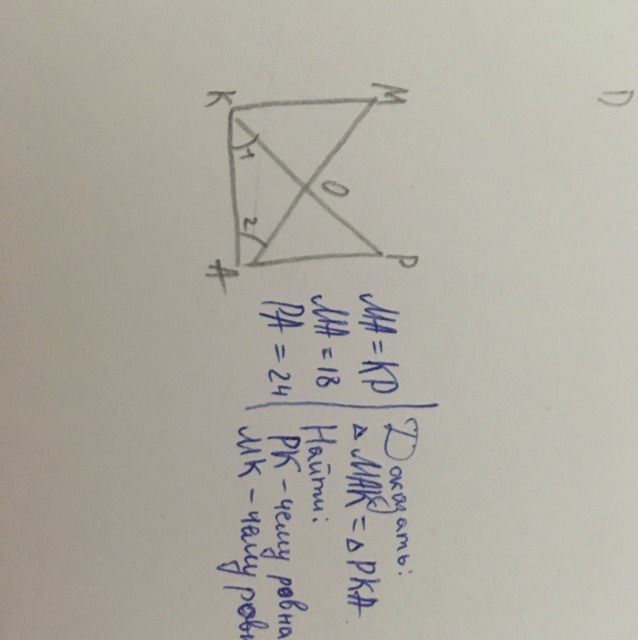 1)
M
P
O
K
1
2
A
MA = KP
MA = 18
PA = 24
Доказать:
△ MAK = △ PKA.
Найти:
PK - чему равна
MK - чему